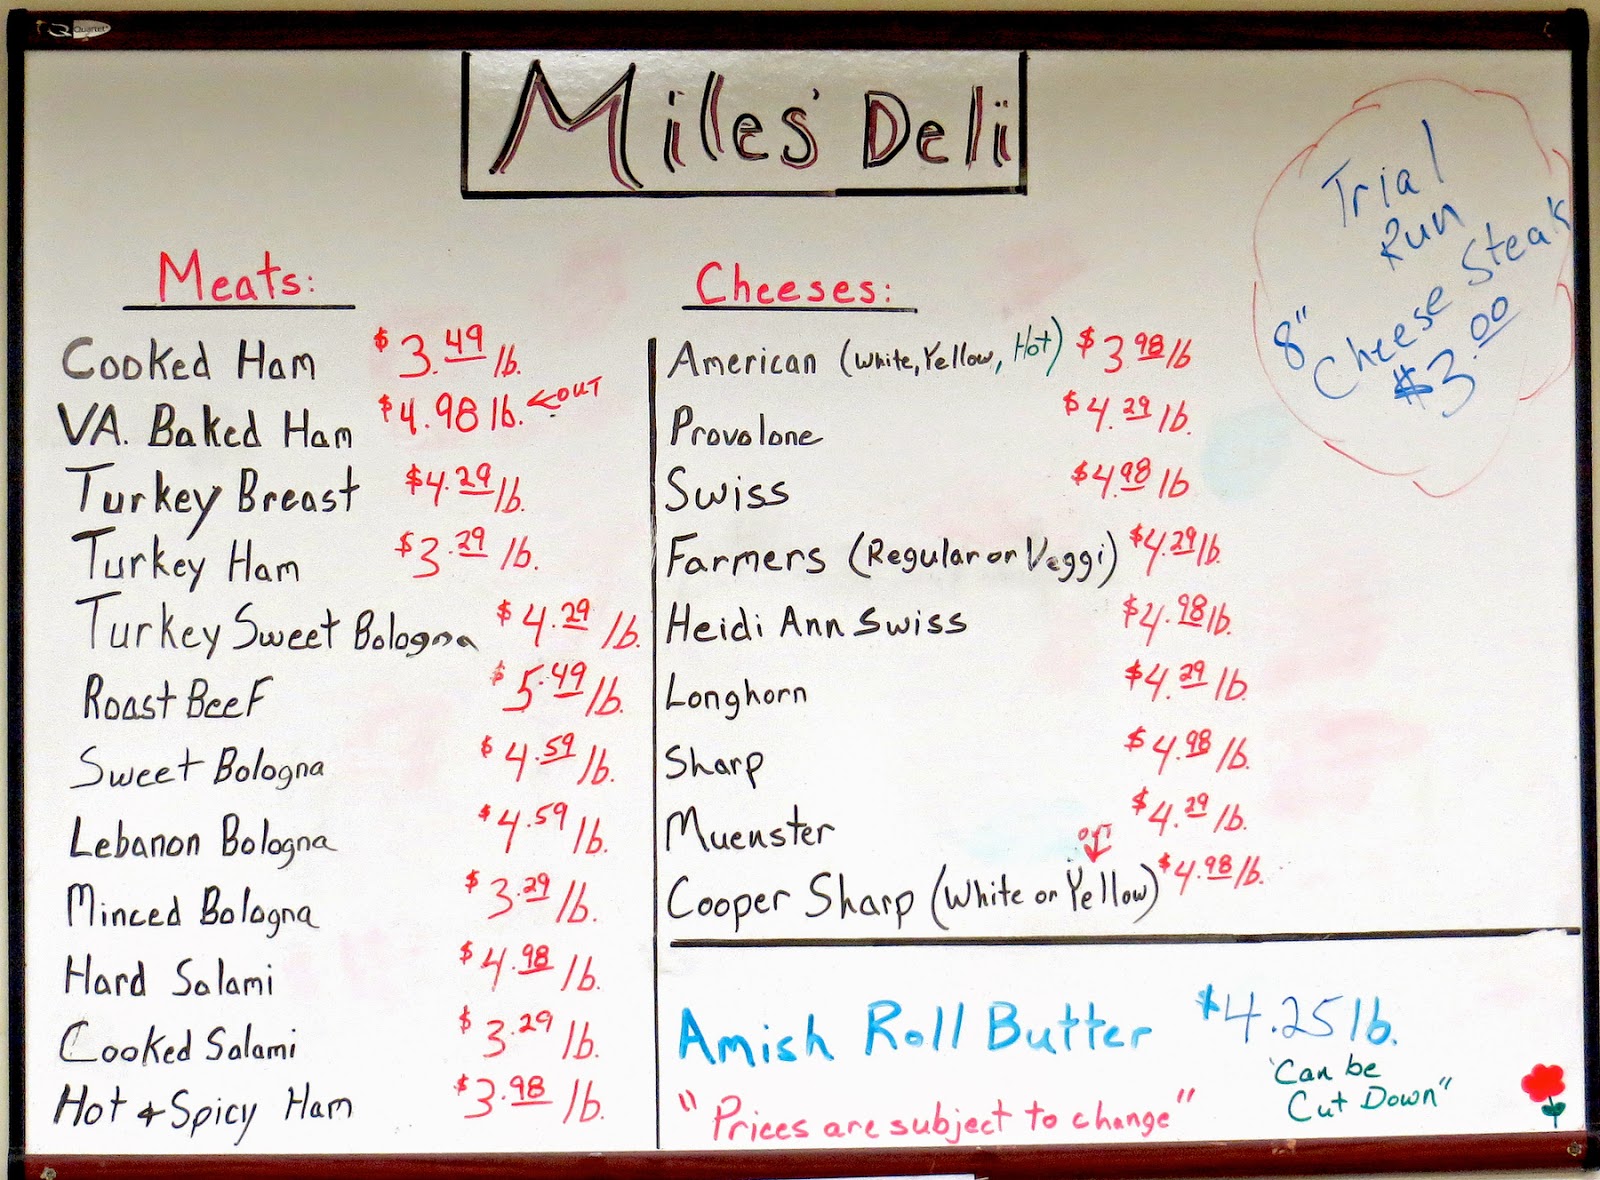 Quartet
Miles' Deli
Trial
Run
8" Cheese Steak
$3.00
Meats:
Cooked Ham $3.49 lb.
VA. Baked Ham $4.98 lb. ←OUT
Turkey Breast $4.29 lb.
Turkey Ham $3.29 lb.
Turkey Sweet Bologna $4.29 lb.
Roast Beef $5.49 lb.
Sweet Bologna $4.59 lb.
Lebanon Bologna $4.59 lb.
Minced Bologna $3.29 lb.
Hard Salami $4.98 lb.
Cooked Salami $3.29 lb.
Hot & Spicy Ham $3.98 lb.
Cheeses:
American (White, Yellow, Hot) $3.98 lb
Provolone $4.29 lb.
Swiss $4.98 lb
Farmers (Regular or Veggi) $4.29 lb.
Heidi Ann Swiss $4.98 lb.
Longhorn $4.29 lb.
Sharp $4.98 lb.
Muenster $4.29 lb.
OUT
Cooper Sharp (White or Yellow) $4.98 lb.
Amish Roll Butter $4.25 lb.
"Can be
Cut Down"
"Prices are subject to change"